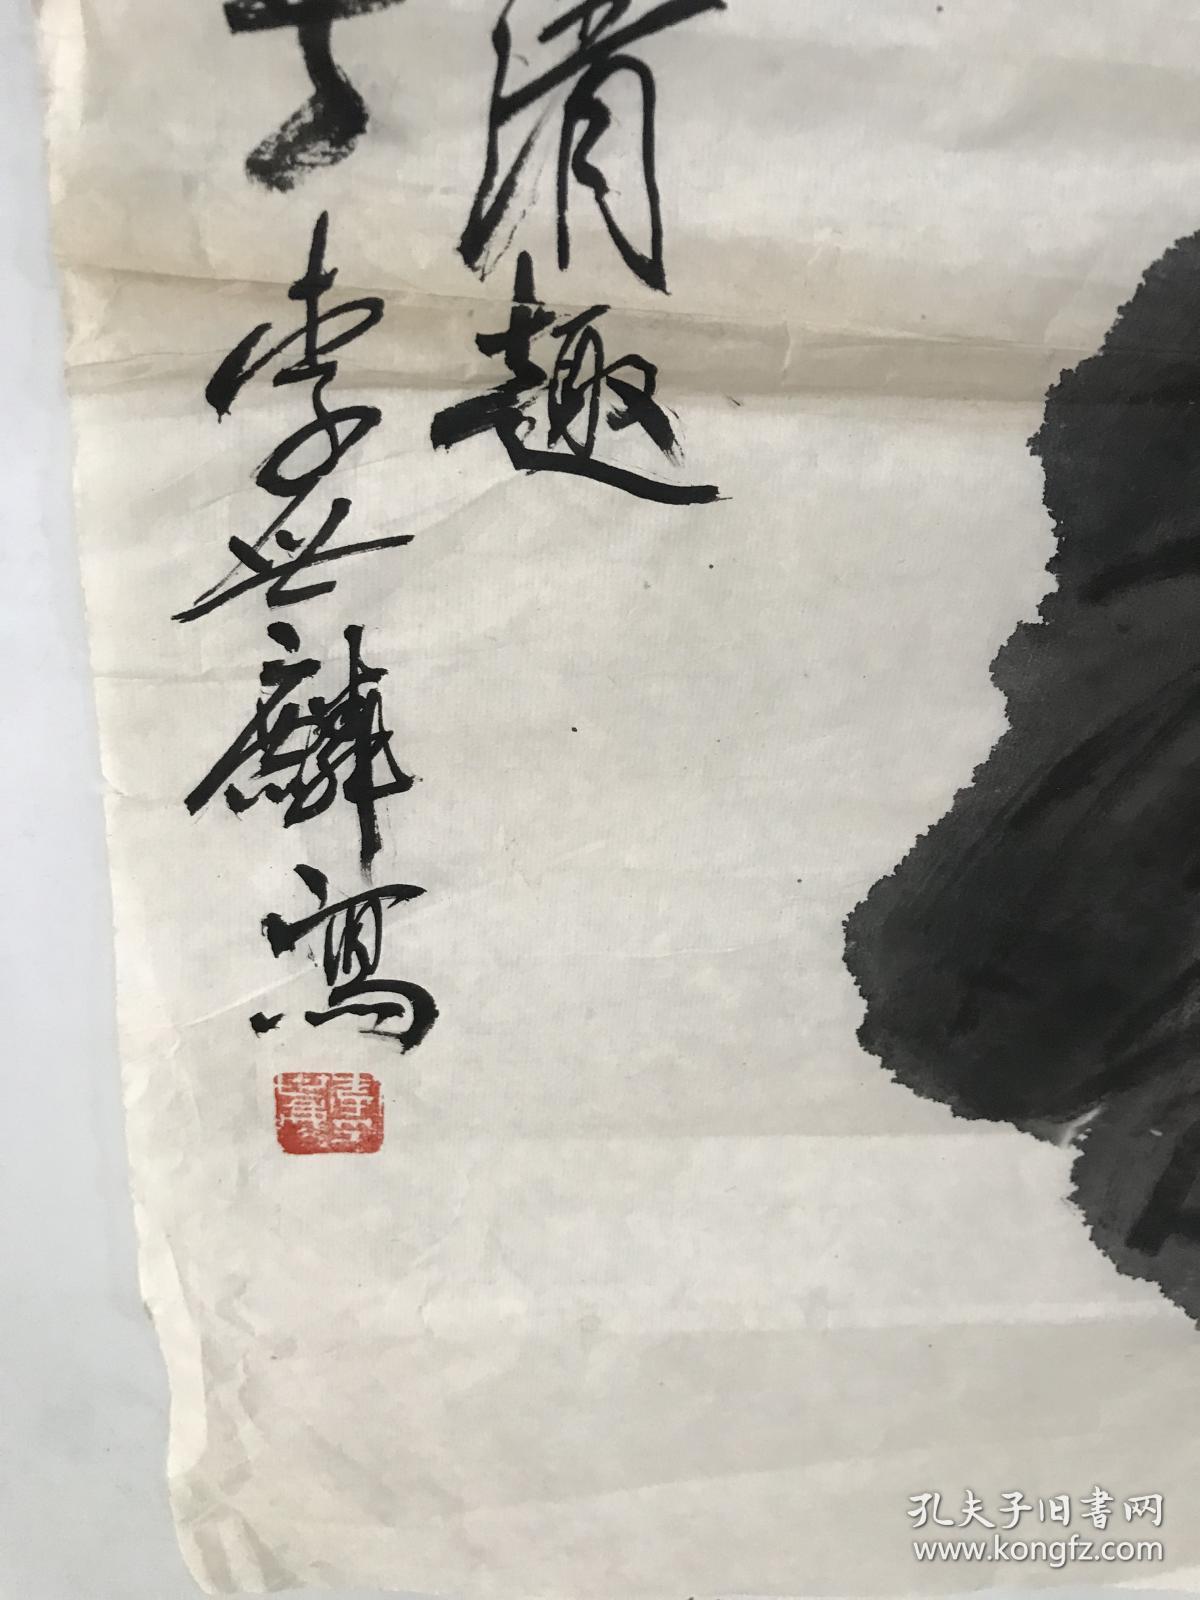 清趣
李世麟寫
孔夫子旧書网
www.kongfz.com